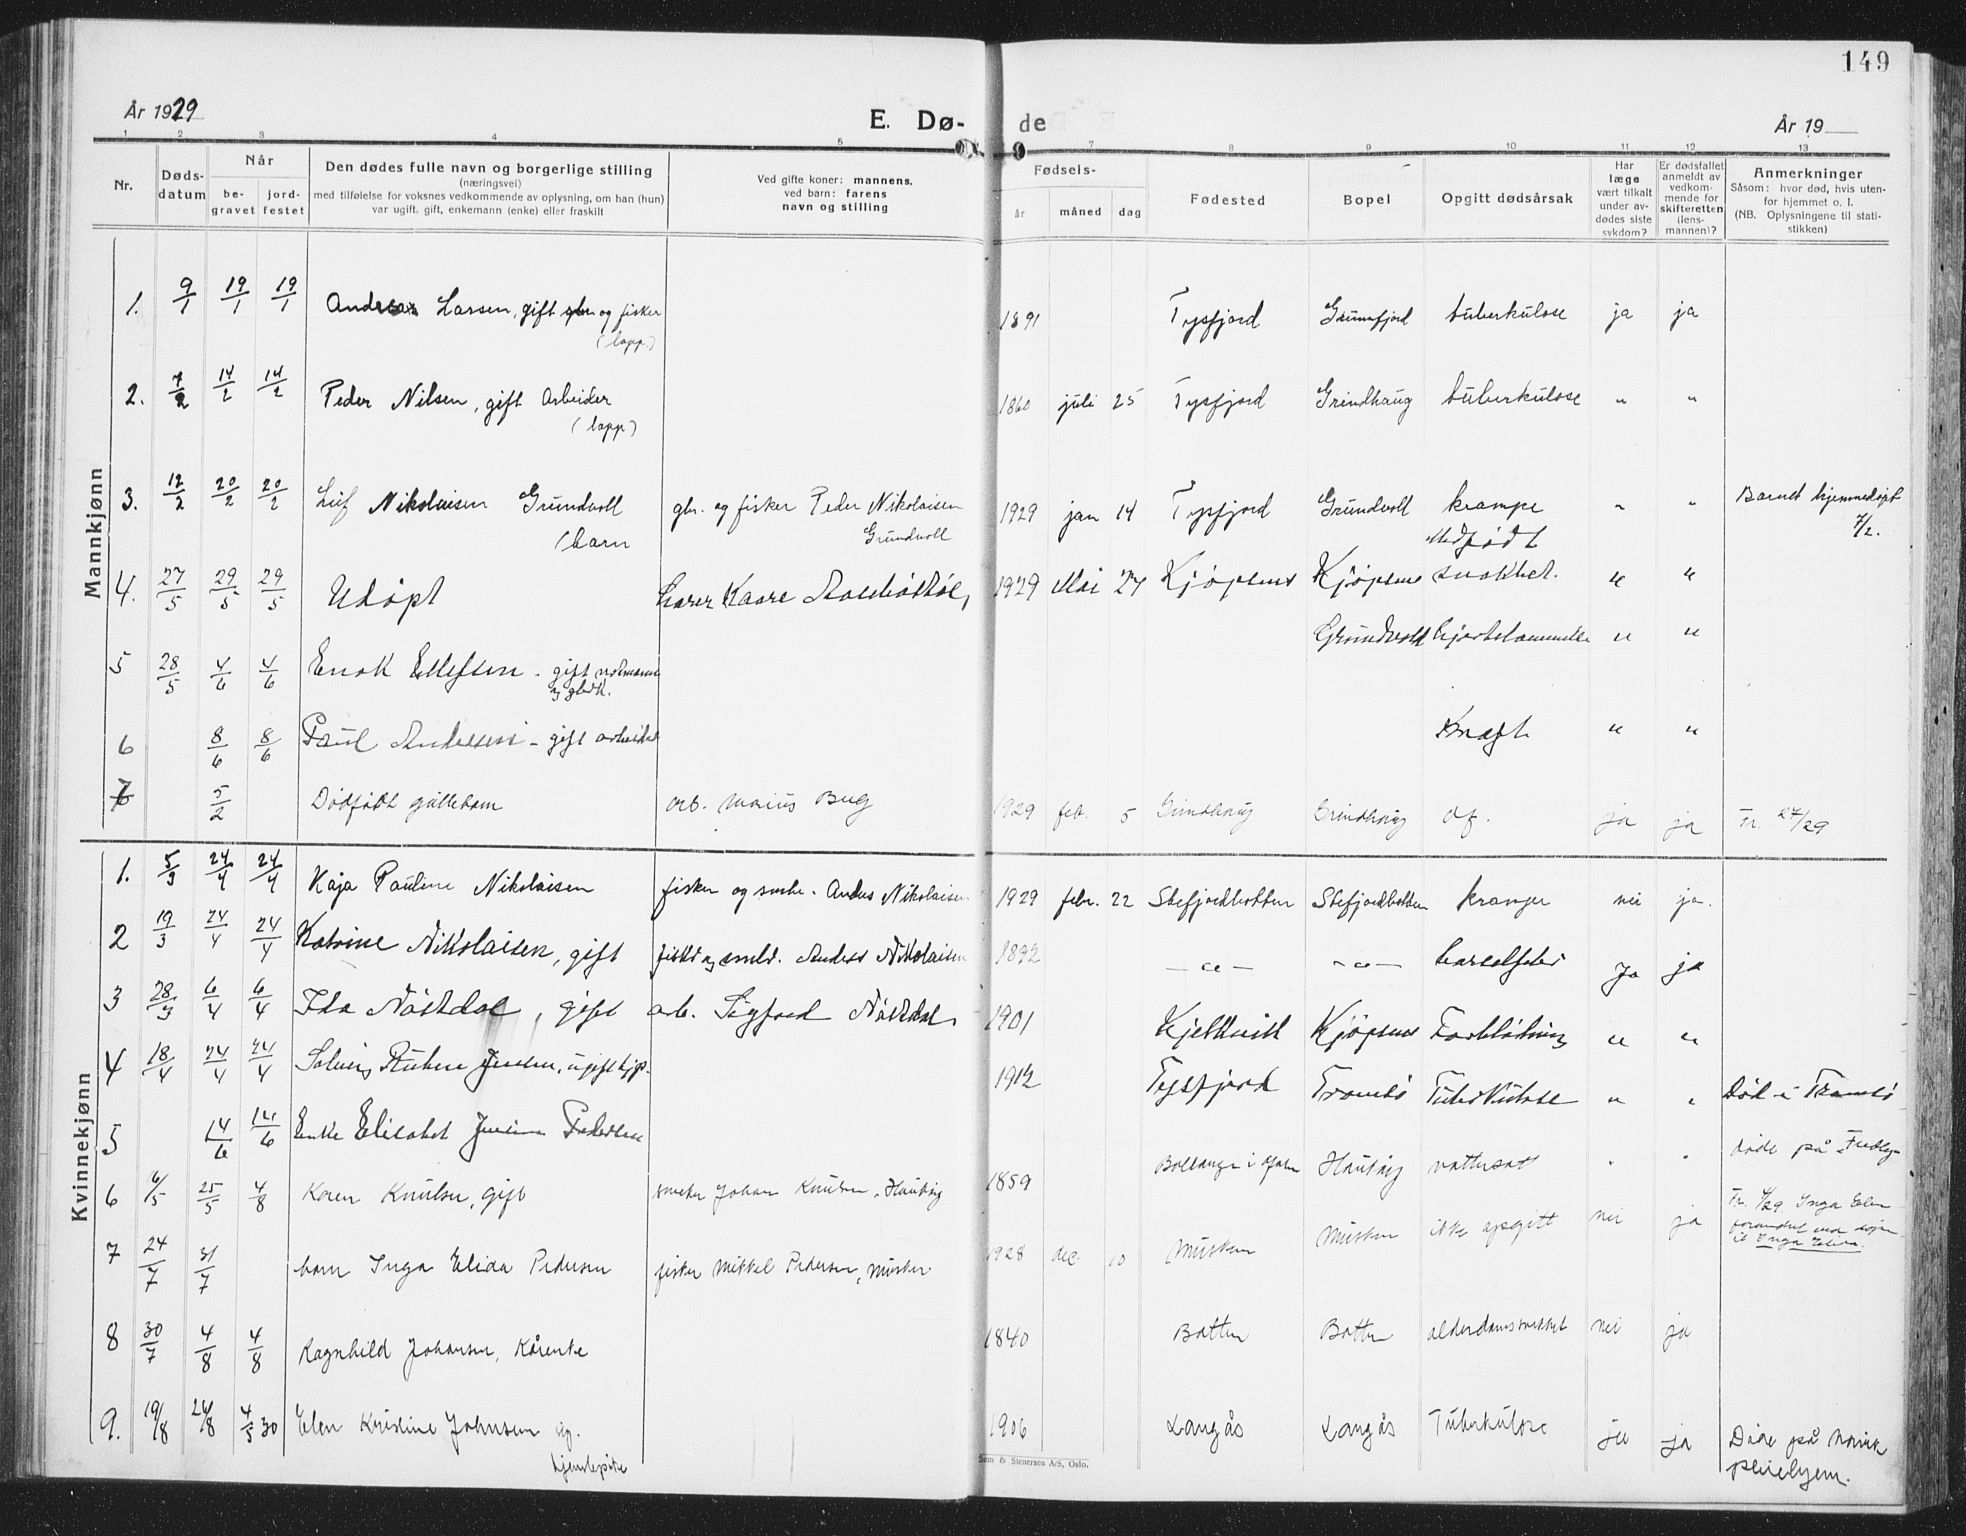 149
År 1929
E. Dø-
de
År 19
1 2 3 4 5 7 8 9 10 11 12 13
Nr.
Døds-
datum
Når
be-
gravet
jord-
festet
Den dødes fulle navn og borgerlige stilling
(næringsvei)
med tilføielse for voksnes vedkommende av oplysning, om han (hun)
var ugift, gift, enkemann (enke) eller fraskilt
Ved gifte koner: mannens,
ved barn: farens
navn og stilling
Fødsels-
år
måned
dag
Fødested
Bopel
Opgitt dødsårsak
Har
læge
vært tilkalt
under av-
dødes siste
sykdom?
Er dødsfallet
anmeldt av
vedkom-
mende for
skifteretten
(lens-
mannen)?
Anmerkninger
Såsom: hvor død, hvis uten-
for hjemmet o. l.
(NB. Oplysningene til stati-
stikken)
Mannkjønn
1. 9/1 19/1 19/1 Andreas Larsen, gift gbr. og fisker 1891 Tysfjord tuberkulose ja ja
(lapp)
2. 7/2 14/2 14/2 Peder Nilsen, gift Arbeider 1860 juli 25 Tysfjord Grindhaug tuberkulose " "
(lapp)
3. 12/2 20/2 20/2 Leif Nikolaisen Grundvoll gbr. og fisker Peder Nikolaisen 1929 jan 14 Tysfjord Grundvoll krampe " " Barnet hjemmedøpt
(barn Grundvoll 7/2.
4. 27/5 29/5 29/5 Udøpt Lærer Kaare 1929 Mai 27 Kjøpsnes Kjøpsnes Medfødt svakhet. " "
5 28/5 4/6 4/6 Enok Ellefsen - gift Grundvold hjertelammelse " "
6 8/6 8/6 Paul Andersen - gift arbeider Kræft " "
7 5/2 Dødfødt guttebarn arb. Marius Bug 1929 feb. 5 Grindhaug Grindhaug df. ja ja Tr. 27/29
Kvinnekjønn
1. 5/3 24/4 24/4 Kaja Pauline Nikolaisen fisker og småbr. Anders Nikolaisen 1929 febr. 22 Stefjordbotten Stefjordbotten nei ja.
2 19/3 24/4 24/4 Katrine Nikolaisen, gift fisker og småbr. Anders Nikolaisen 1892 - " - - " - barselfeber ja ja
3 28/3 6/4 6/4 Ida Nöstdal, gift arb. Sigfred Nöstdal 1901 Kjelkvik Kjøpsnes Forblødning " "
4 18/4 24/4 24/4 Solveig Jensen, ugift hjp. 1912 Tysfjord Tromsö Tuberkulose " " Död i Tromsö
5 14/6 14/6 Enke Elisabet Pedersen
6 6/5 25/5 4/8 Karen Knutsen, gift Johan Knutsen, Haukøy 1859 Ballangen i Ofoten Haukøy vattersot " " døde på
7 24/7 31/7 barn Inga Elida Pedersen fisker Mikkel Pedersen, Musken 1928 dec 10 Musken Musken ikke opgitt nei ja Tr. 4/29. Inga Elen
forandret ved
til Inga Elida.
8 30/7 4/8 4/8 Ragnhild Johansen, Kårenke 1840 Botten Botten alderdomssvakhet nei ja
9. 19/8 24/8 4/5 30 Elen Kristine Johnsen ug. 1906 Langås Langås Tuberkulose ja ja Døde på Narvik
hjemmepike pleiehjem.
Sem & Stenersen A/S, Oslo.